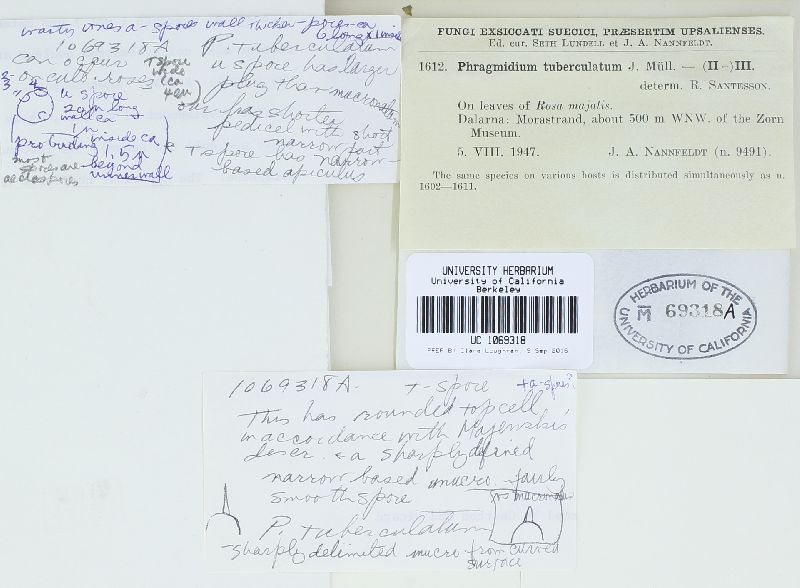 warty ones a-spore wall thicker-pores-ca
1069318A
can occur
T spore
wide
(ca
P. tuberculatum
u spore has larger
plug than
has shorter
pedicel with short
narrow
T spore has narrow-
based apiculus
u spore
2 um long
wall ca
in
protruding
inside ca
1,5 u
beyond
inner wall
most
spores are
aeciospores
FUNGI EXSICCATI SUECICI, PRÆSERTIM UPSALIENSES.
Ed. cur. SETH LUNDELL et J. A. NANNFELDT.
1612. Phragmidium tuberculatum J. Müll. — (II–)III.
determ. R. SANTESSON.
On leaves of Rosa majalis.
Dalarna: Morastrand, about 500 m WNW. of the Zorn
Museum.
5. VIII. 1947. J. A. NANNFELDT (n. 9491).
The same species on various hosts is distributed simultaneously as n.
1602—1611.
UNIVERSITY HERBARIUM
University of California
Berkeley
UC 1069318
HERBARIUM OF THE
M 69318A
UNIVERSITY OF CALIFORNIA
1069318A. T-spore +a-spores?
This has rounded topcell,
in accordance with Majewskis
descr. & a sharply defined
narrow based mucro - fairly
smooth spore
P. tuberculatum
-sharply delimited mucro from curved
surface